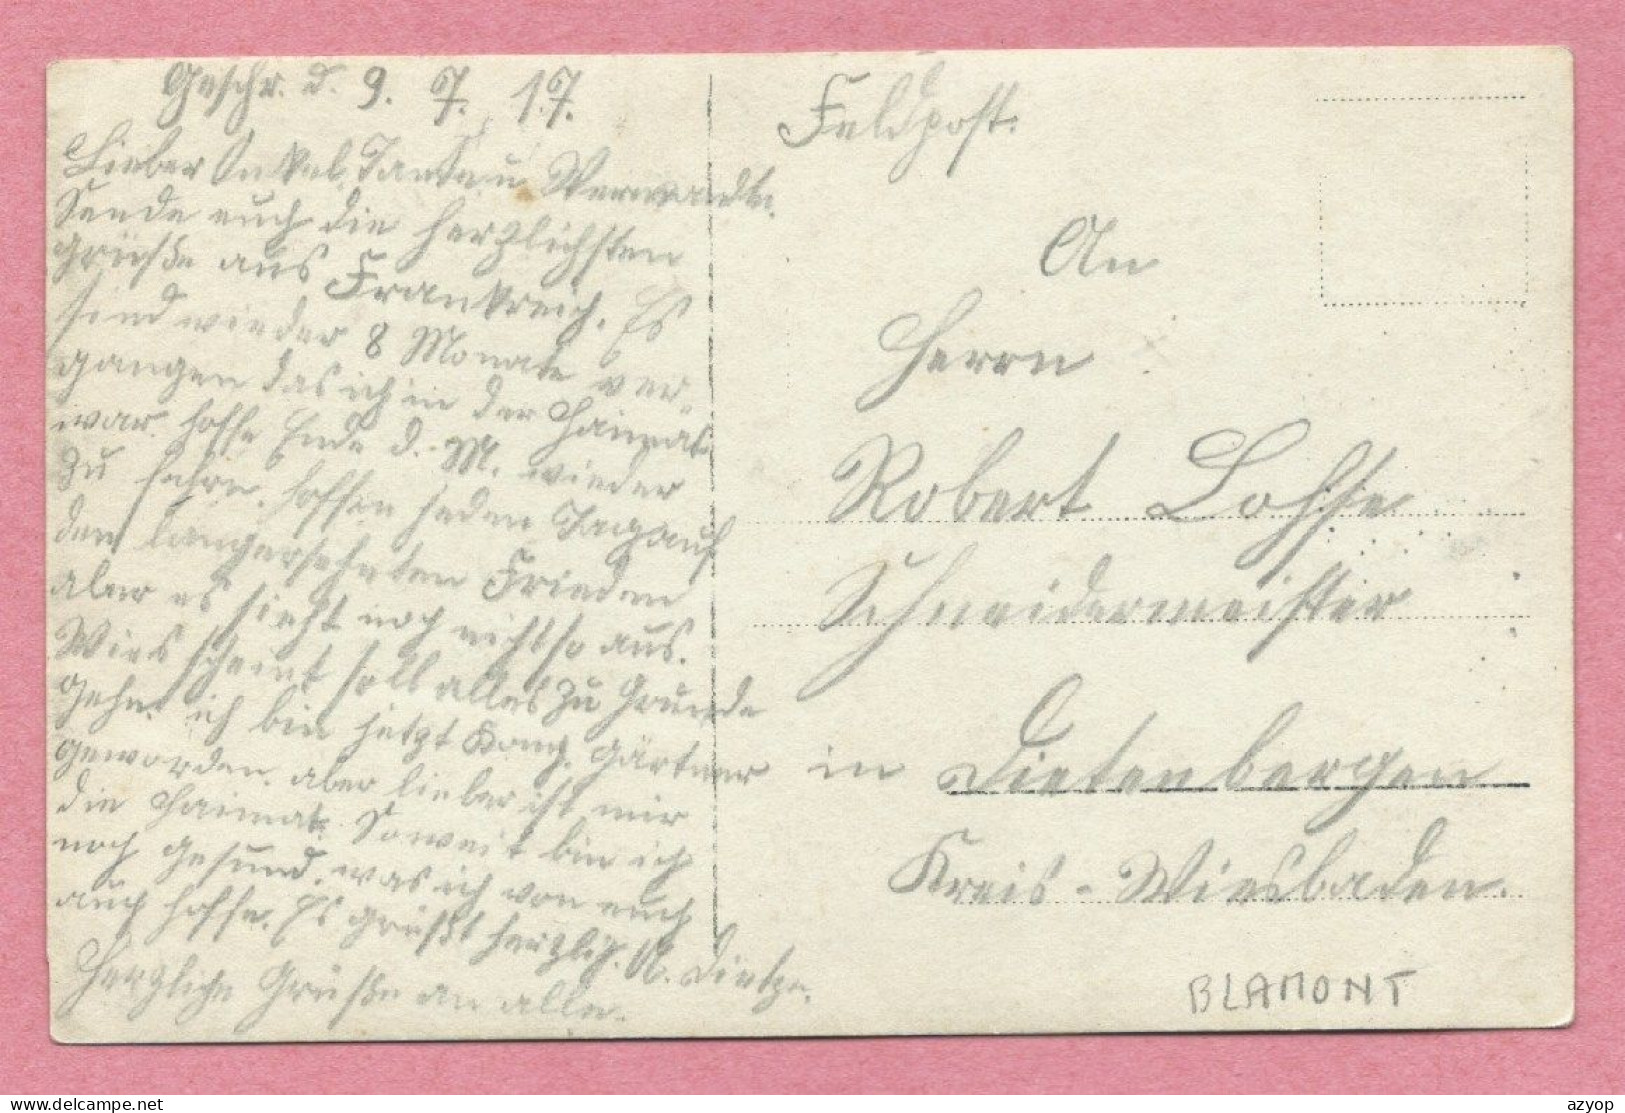 Geschr. d. 9. 7. 17.
Lieber Onkel, Tante u. Verwandte.
Sende euch die herzlichsten
Grüße aus Frankreich. Es
sind wieder 8 Monate ver-
gangen das ich in der Haimat
war. hoffe Ende d. M. wieder
zu fahrn. hoffen jeden Tag auf
den langersehnten Frieden
aber es sieht noch nicht so aus.
Wies scheint soll alles zu Grunde
gehn. ich bin jetzt Komp. Gärtner
geworden. aber lieber ist mir
die Haimat. Soweit bin ich
noch gesund. was ich von euch
auch hoffe. Es grüßt herzlich. A. Dietze.
Herzliche Grüße an alle.
Feldpost.
An
Herrn
Robert Lohse
Schneidermeister
in Dietenbergen
Kreis-Wiesbaden.
BLAMONT
https://www.delcampe.net
azyop